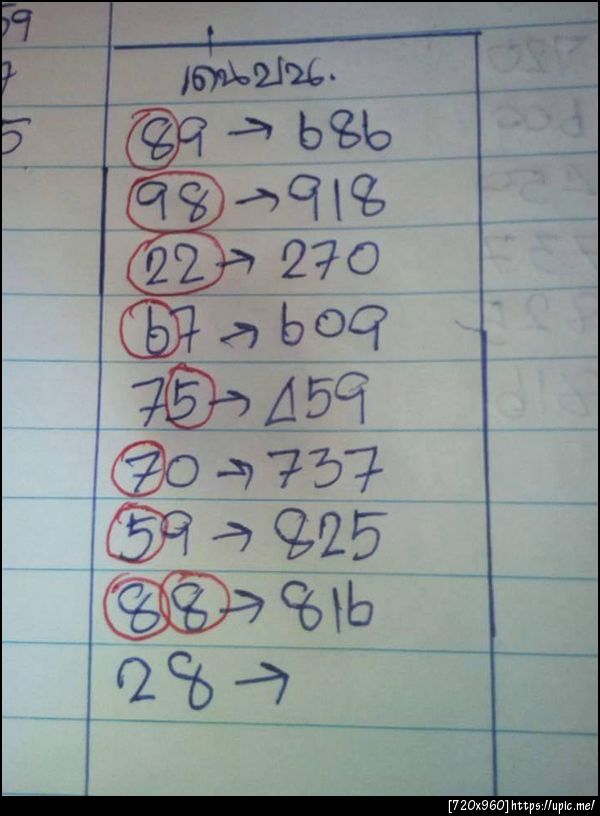 59
7
5
เดนบน.
89 → 686
98 → 918
22 → 270
67 → 609
75 → 459
70 → 737
59 → 825
88 → 816
28 →
[720x960] https://upic.me/